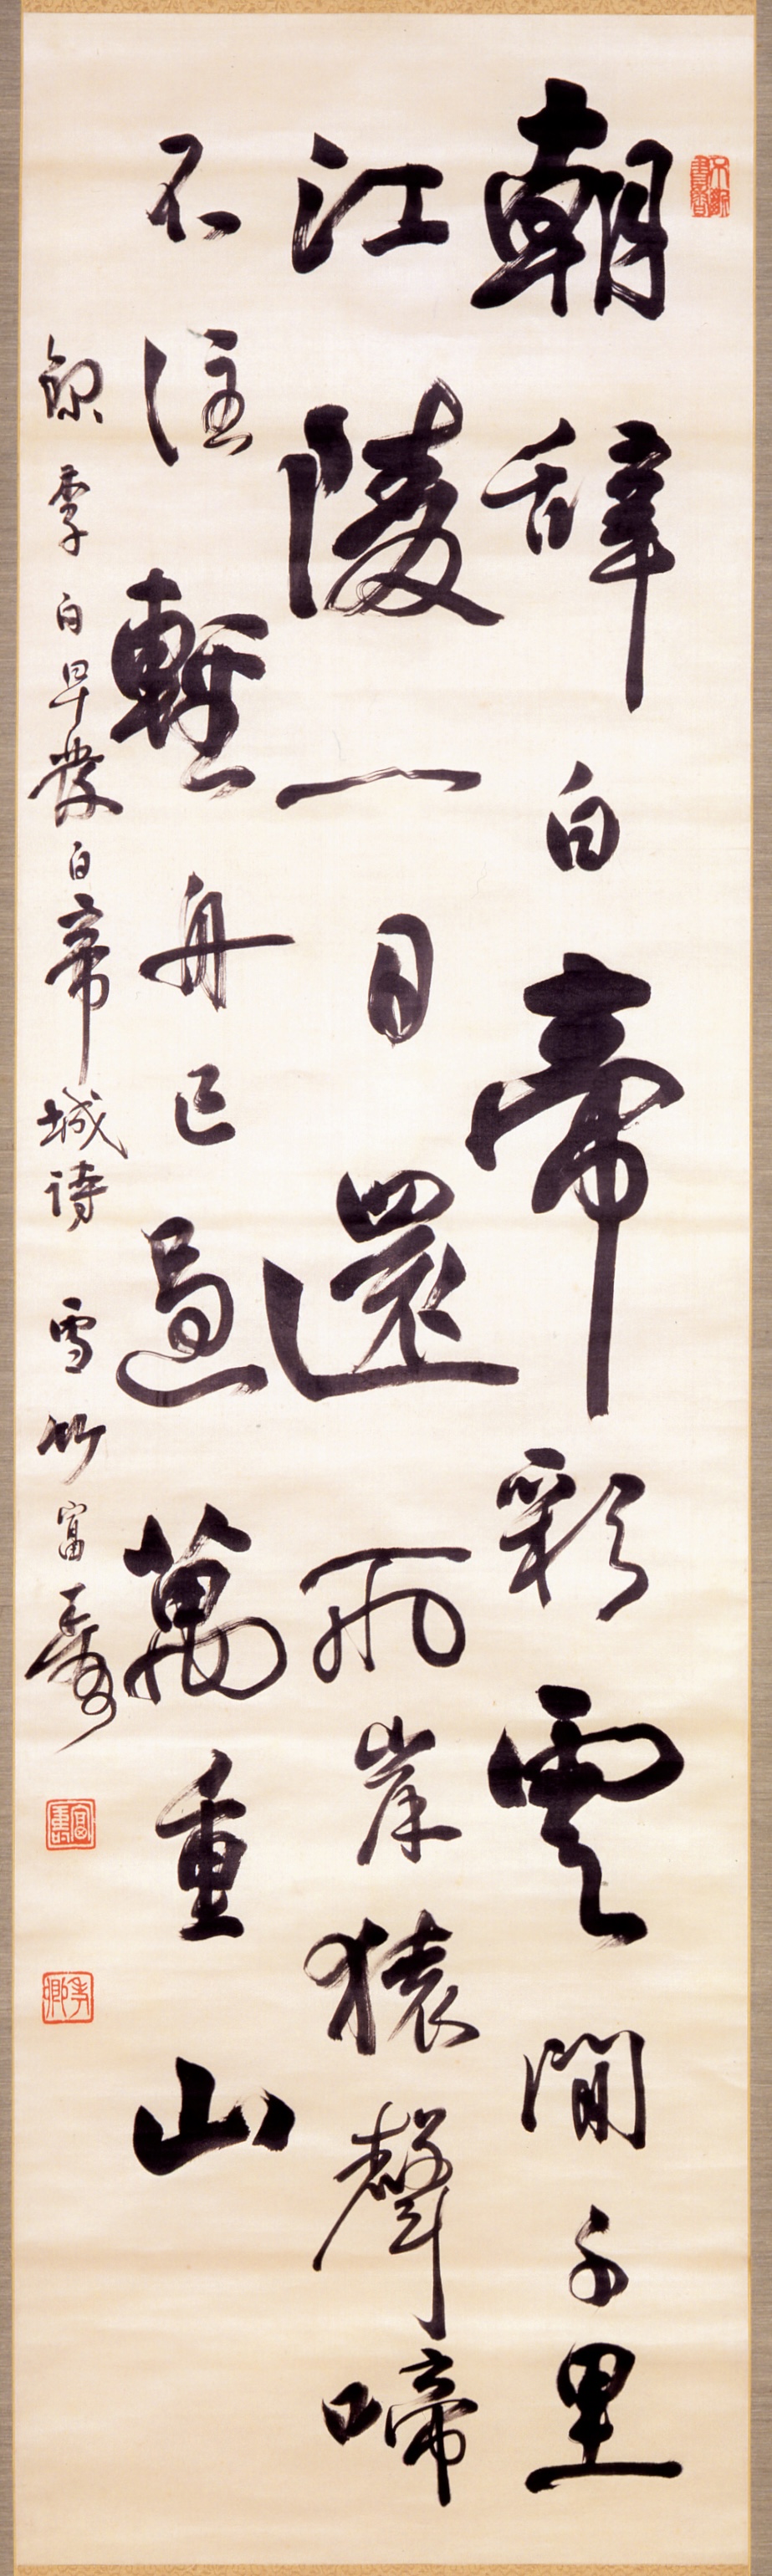 朝辞白帝彩雲間千里
江陵一日還兩岸猿聲啼
不住輕舟已過萬重山
錄李白早發白帝城詩 雪竹富壽
富壽